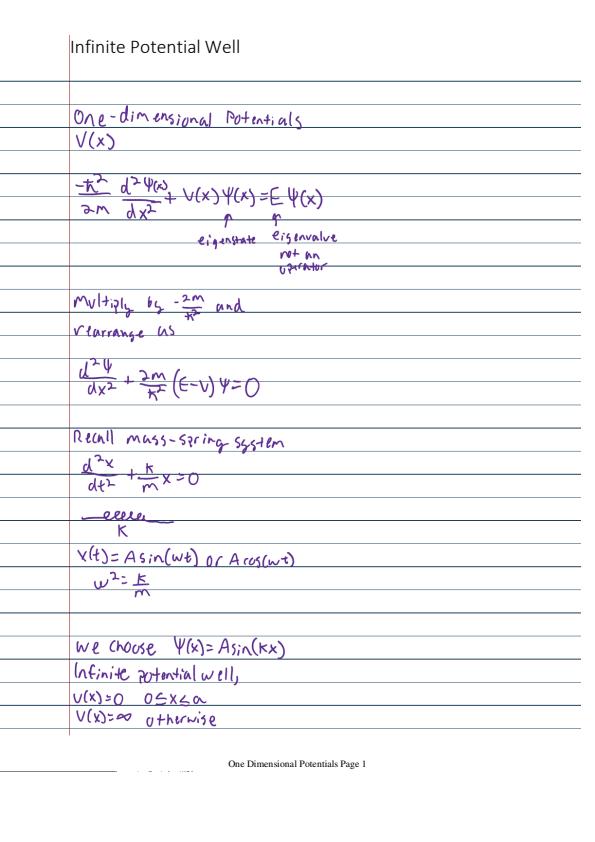 Infinite Potential Well
One-dimensional Potentials
V(x)
-ħ²/2m d²Ψ(x)/dx² + V(x)Ψ(x)=EΨ(x)
eigenstate eigenvalue
not an
operator
Multiply by -2m/ħ² and
rearrange as
d²Ψ/dx² + 2m/ħ² (E-V)Ψ=0
Recall mass-spring system
d²x/dt² + k/m x=0
k
x(t)=Asin(wt) or Acos(wt)
w²=k/m
we choose Ψ(x)=Asin(kx)
Infinite potential well,
V(x)=0 0≤x≤a
V(x)=∞ otherwise
One Dimensional Potentials Page 1